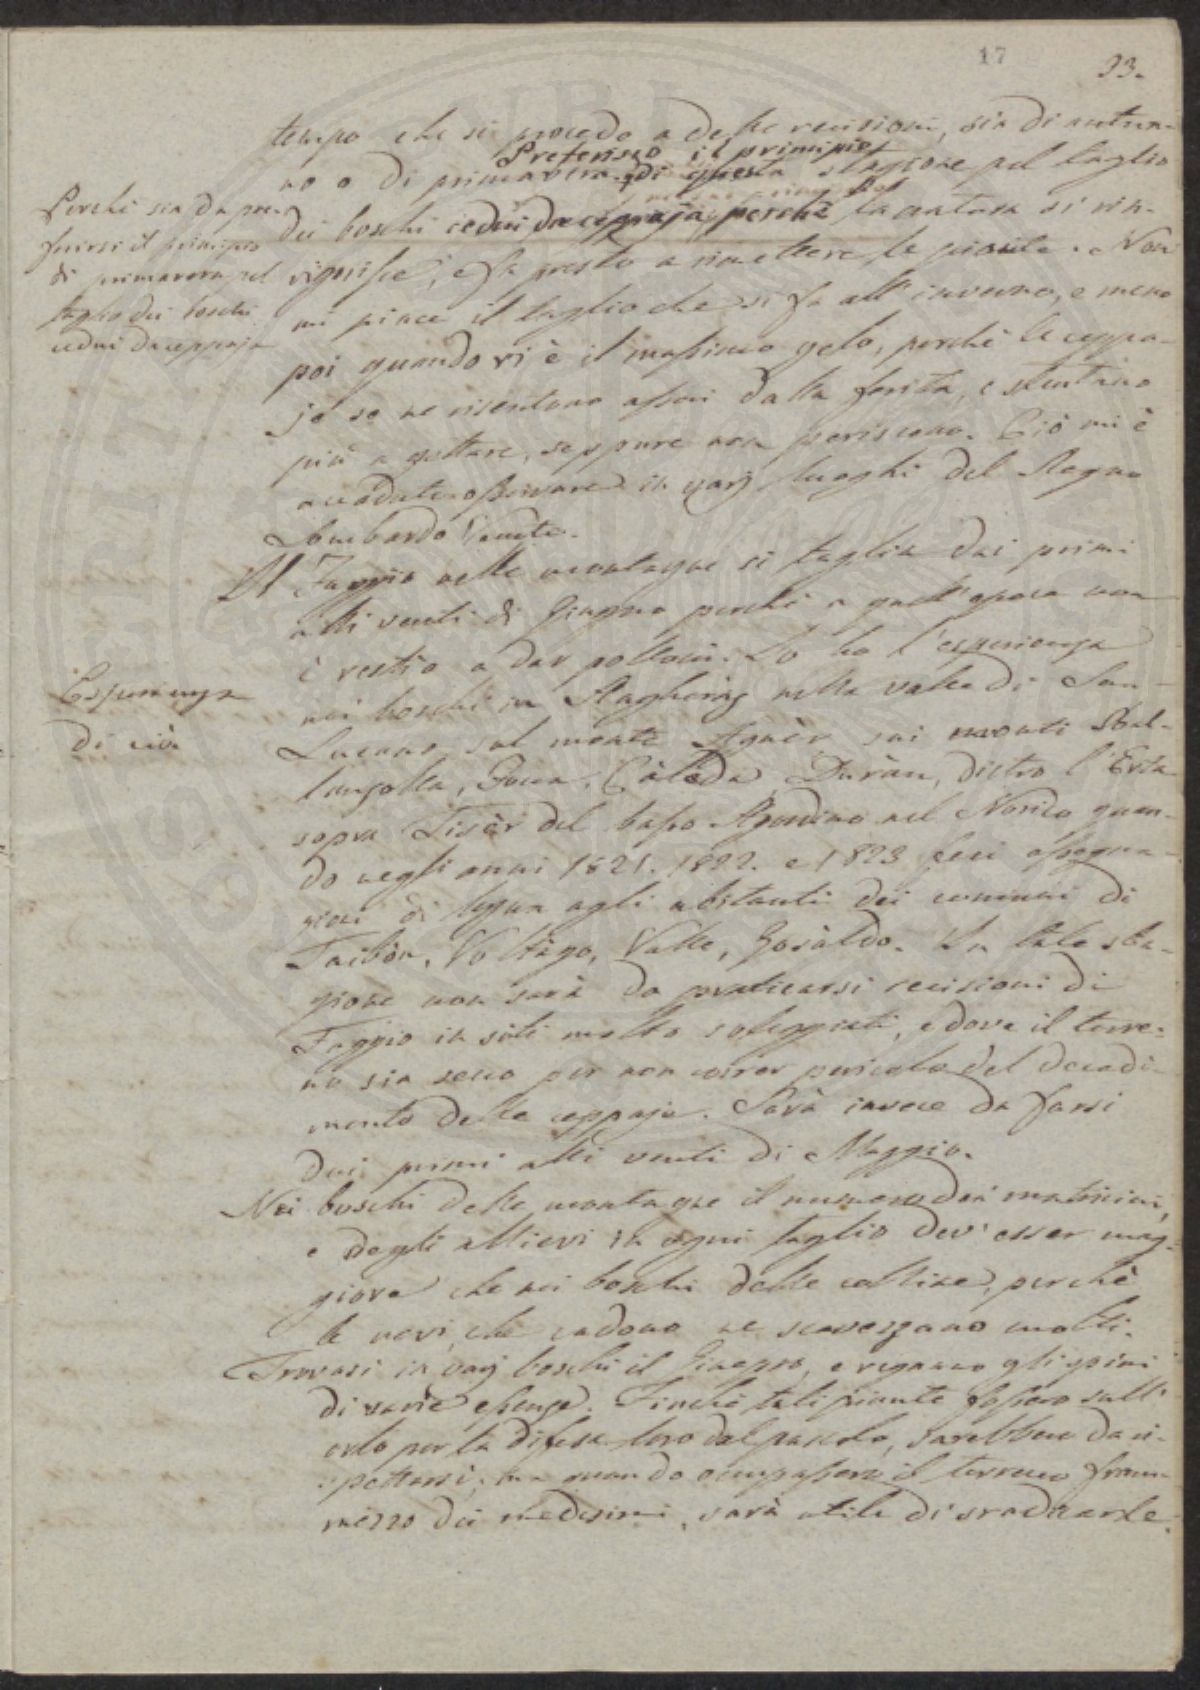 17
23.
tempo che si procede a dette recisioni, sia di autun-
no o di primavera. Preferisco il principio di questa stagione pel taglio
dei boschi cedui da ceppaja perchè la natura si rin-
vigorisce, e fa presto a rimettere le piante. Non
mi piace il taglio che si fa all'inverno, e meno
poi quando vi è il massimo gelo, perchè le ceppa-
je se ne risentono assai dalla ferita, e stentano
più a gettare, seppure non periscono. Ciò mi è
accaduto osservare in varj luoghi del Regno
Lombardo Veneto.
Perchè sia da pre-
ferirsi il principio
di primavera pel
taglio dei boschi
cedui da ceppaja
Il Faggio nelle montagne si taglia dai primi
alli venti di Giugno perchè a quell'epoca non
è restìo a dar polloni. Io ho l'esperienza
nei boschi in nella valle di San
Lucano, sul monte Agnèr, sui monti
Duràn, dietro l'
sopra Tisèr del basso Agordino nel quan-
do negli anni 1821. 1822. e 1823 feci assegna-
zioni di legna agli abitanti dei comuni di
Taibòn, Voltàgo, Valle, Gosàldo. In tale sta-
gione non sarà da praticarsi recisioni di
Faggio in siti molto soleggiati, e dove il terre-
no sia secco per non correr pericolo del decadi-
mento delle ceppaje. Sarà invece da farsi
dai primi alli venti di Maggio.
Esperienza
di ciò
Nei boschi delle montagne il numero dei matricini,
e degli allievi in ogni taglio dev'esser mag-
giore che nei boschi delle colline, perchè
le nevi che cadono ne scavezzano molti.
Trovasi in varj boschi il Ginepro, e regnano gli spini
di varie essenze. Finchè tali piante fossero sull'
orlo per la difesa loro dal pascolo, sarebbero da ri-
spettarsi; ma quando occupassero il terreno fram-
mezzo dei medesimi, sarà utile di sradicarle.